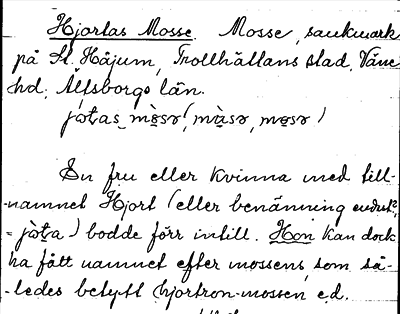 Hjortas Mosse. Mosse, sankmark
på St. Håjum, Trollhättans stad, Väne
hd, Älfsborgs län.
En fru eller kvinna med till-
-namnet Hjort (eller benämning
) bodde förr intill. Hon kan dock
ha fått namnet efter mossens, som så-
-ledes betytt hjortron-mossen e.d.